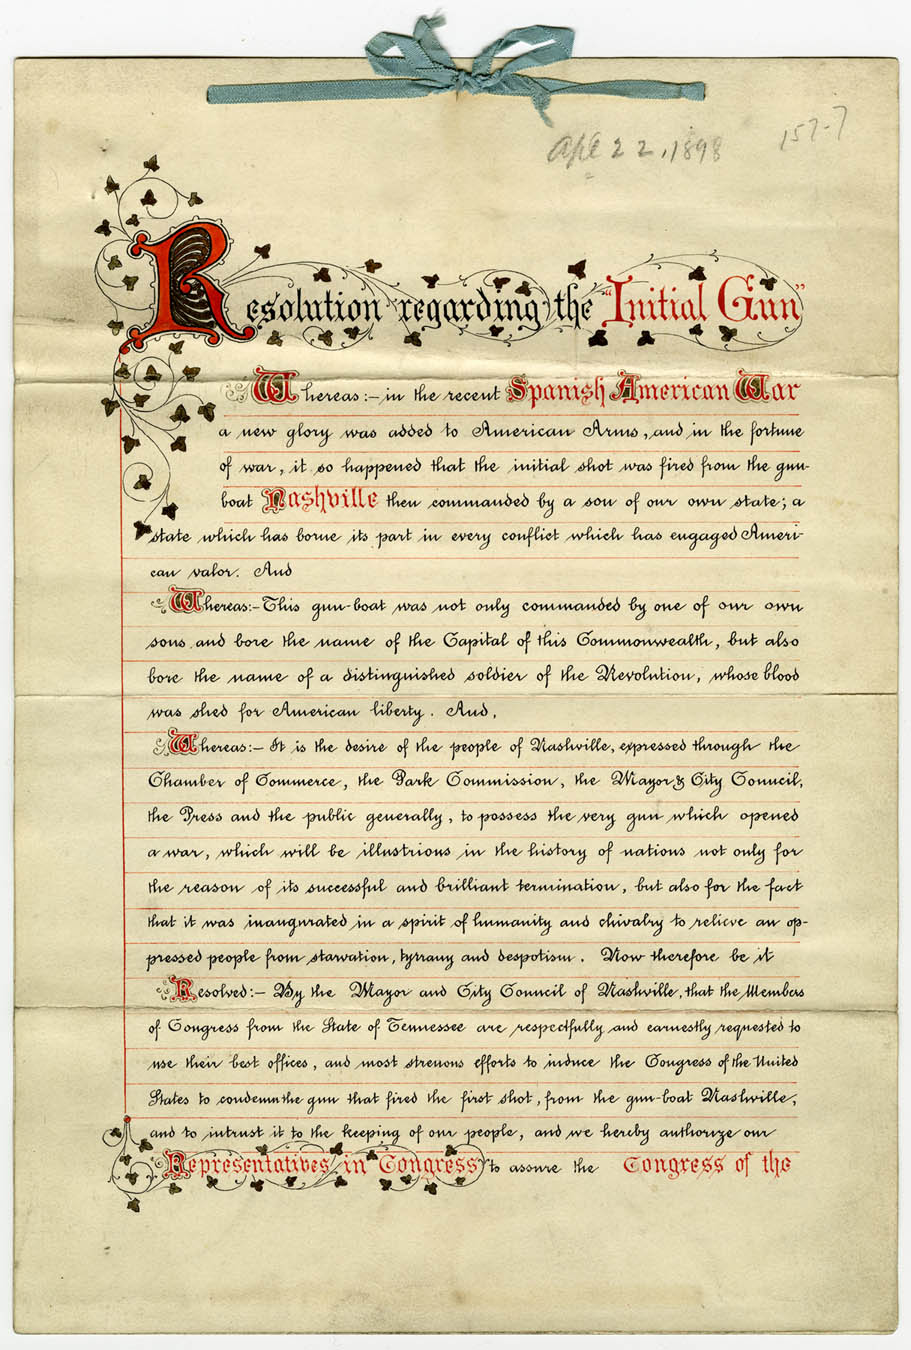 Apr 22, 1898
157-7
Resolution regarding the "Initial Gun"
Whereas:— in the recent Spanish American War
a new glory was added to American Arms, and in the fortune
of war, it so happened that the initial shot was fired from the gun-
boat Nashville then commanded by a son of our own state; a
state which has borne its part in every conflict which has engaged Ameri-
can valor. And
Whereas:— This gun-boat was not only commanded by one of our own
sons and bore the name of the Capital of this Commonwealth, but also
bore the name of a distinguished soldier of the Revolution, whose blood
was shed for American liberty. And,
Whereas:— It is the desire of the people of Nashville, expressed through the
Chamber of Commerce, the Park Commission, the Mayor & City Council,
the Press and the public generally, to possess the very gun which opened
a war, which will be illustrious in the history of nations not only for
the reason of its successful and brilliant termination, but also for the fact
that it was inaugurated in a spirit of humanity and chivalry to relieve an op-
pressed people from starvation, tyranny and despotism. Now therefore be it
Resolved:— By the Mayor and City Council of Nashville, that the Members
of Congress from the State of Tennessee are respectfully and earnestly requested to
use their best offices, and most strenuous efforts to induce the Congress of the United
States to condemn the gun that fired the first shot, from the gun-boat Nashville,
and to intrust it to the keeping of our people, and we hereby authorize our
Representatives in Congress to assure the Congress of the